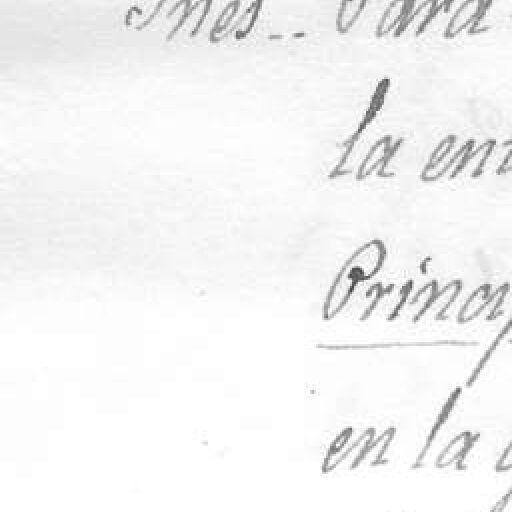 Inés.. Para
la en
Princip
en la